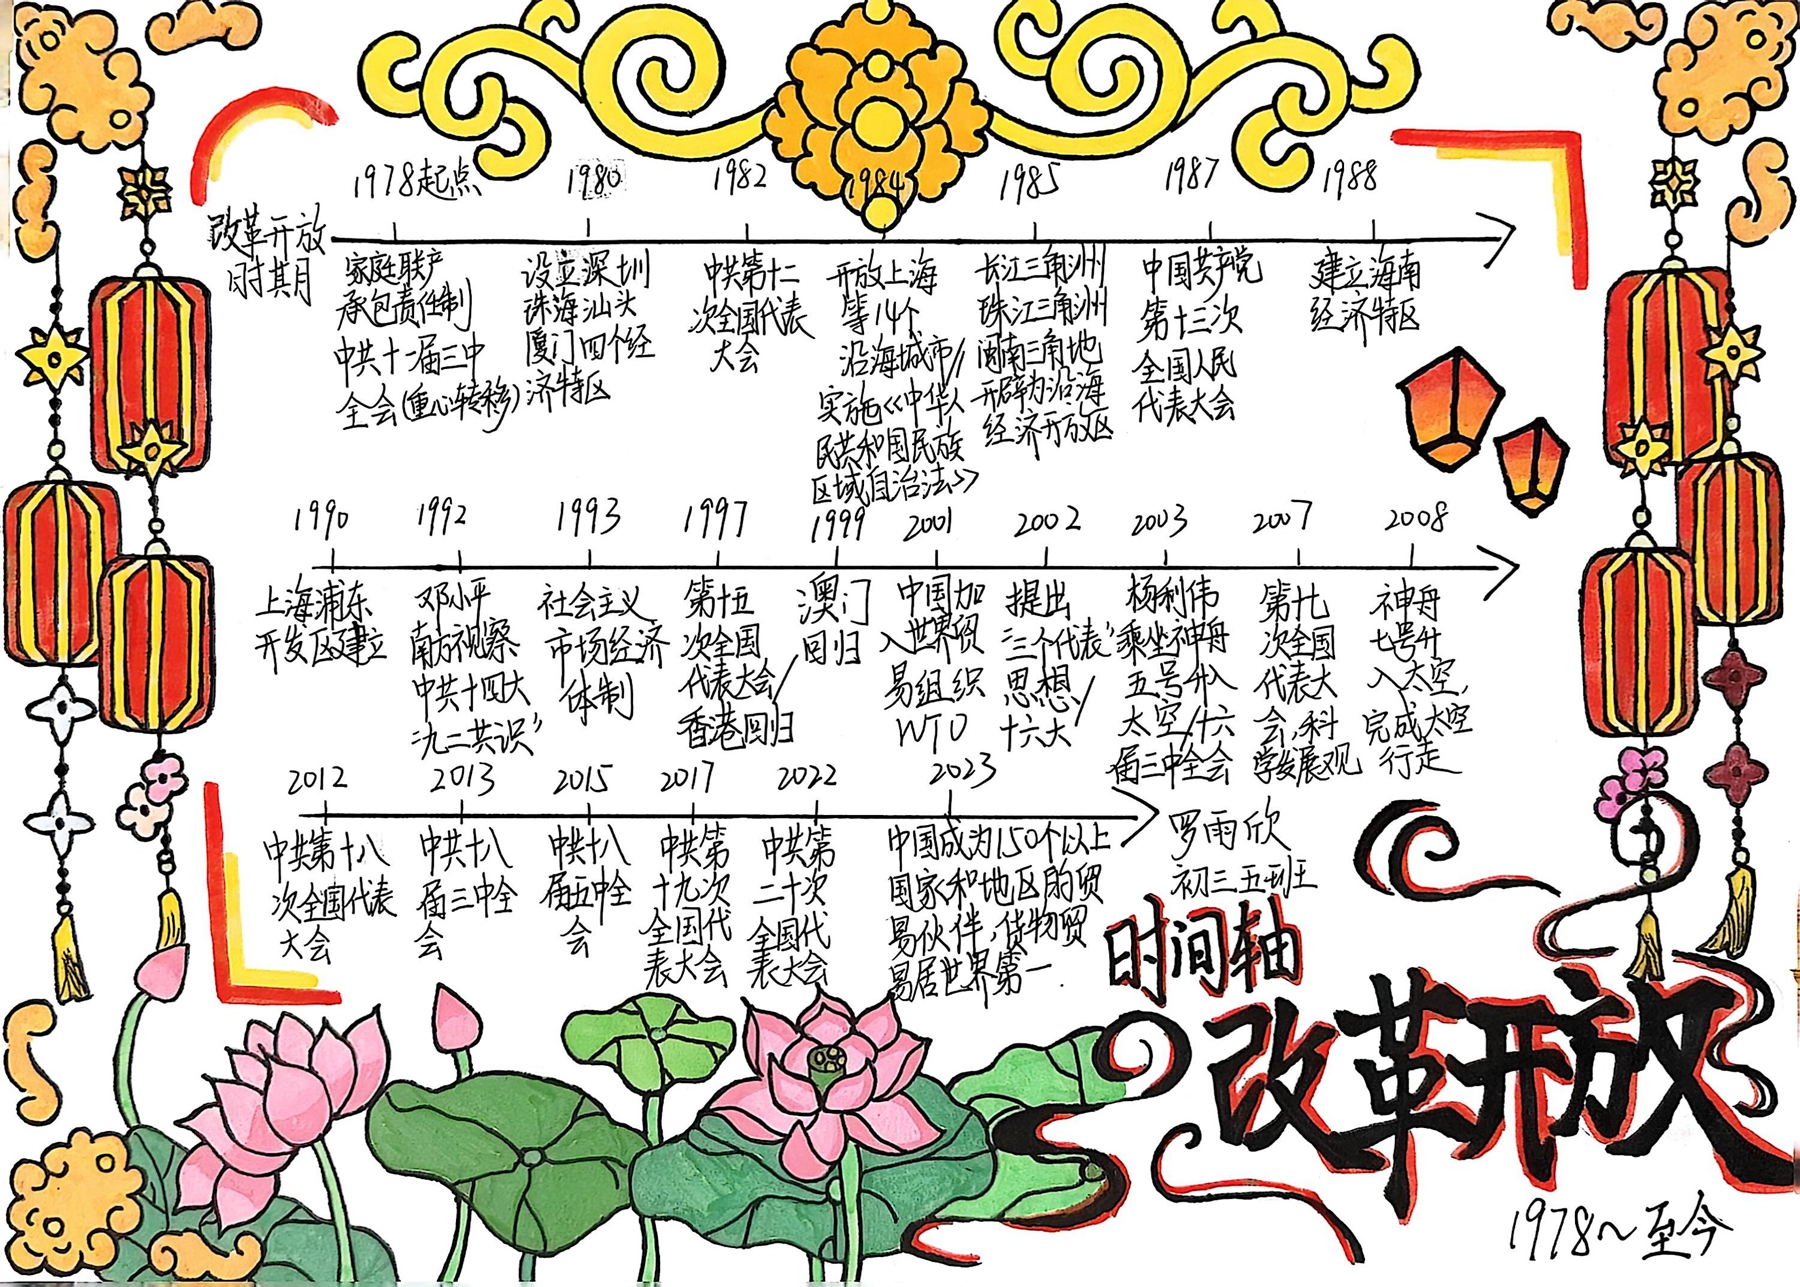 1978起点
1980
1982
1984
1985
1987
1988
改革开放
时期
家庭联产
承包责任制
中共十一届三中
全会(重心转移)
设立深圳
珠海汕头
厦门四个经
济特区
中共第十二
次全国代表
大会
开放上海
等14个
沿海城市//
实施《中华人
民共和国民族
区域自治法》
长江三角洲
珠江三角洲
闽南三角地
开辟为沿海
经济开放区
中国共产党
第十三次
全国人民
代表大会
建立海南
经济特区
1990
1992
1993
1997
1999
2001
2002
2003
2007
2008
上海浦东
开发区建立
邓小平
南方视察
中共十四大
"九二共识"
社会主义
市场经济
体制
第十五
次全国
代表大会/
香港回归
澳门
回归
中国加
入世界贸
易组织
WTO
提出
"三个代表"
思想/
十六大
杨利伟
乘坐神舟
五号升入
太空/十六
届三中全会
第十七
次全国
代表大
会,科
学发展观
神舟
七号升
入太空,
完成太空
行走
2012
2013
2015
2017
2022
2023
中共第十八
次全国代表
大会
中共十八
届三中全
会
中共十八
届五中全
会
中共第
十九次
全国代
表大会
中共第
二十次
全国代
表大会
中国成为150个以上
国家和地区的贸
易伙伴,货物贸
易居世界第一.
罗雨欣
初三五班
时间轴
改革开放
1978~至今